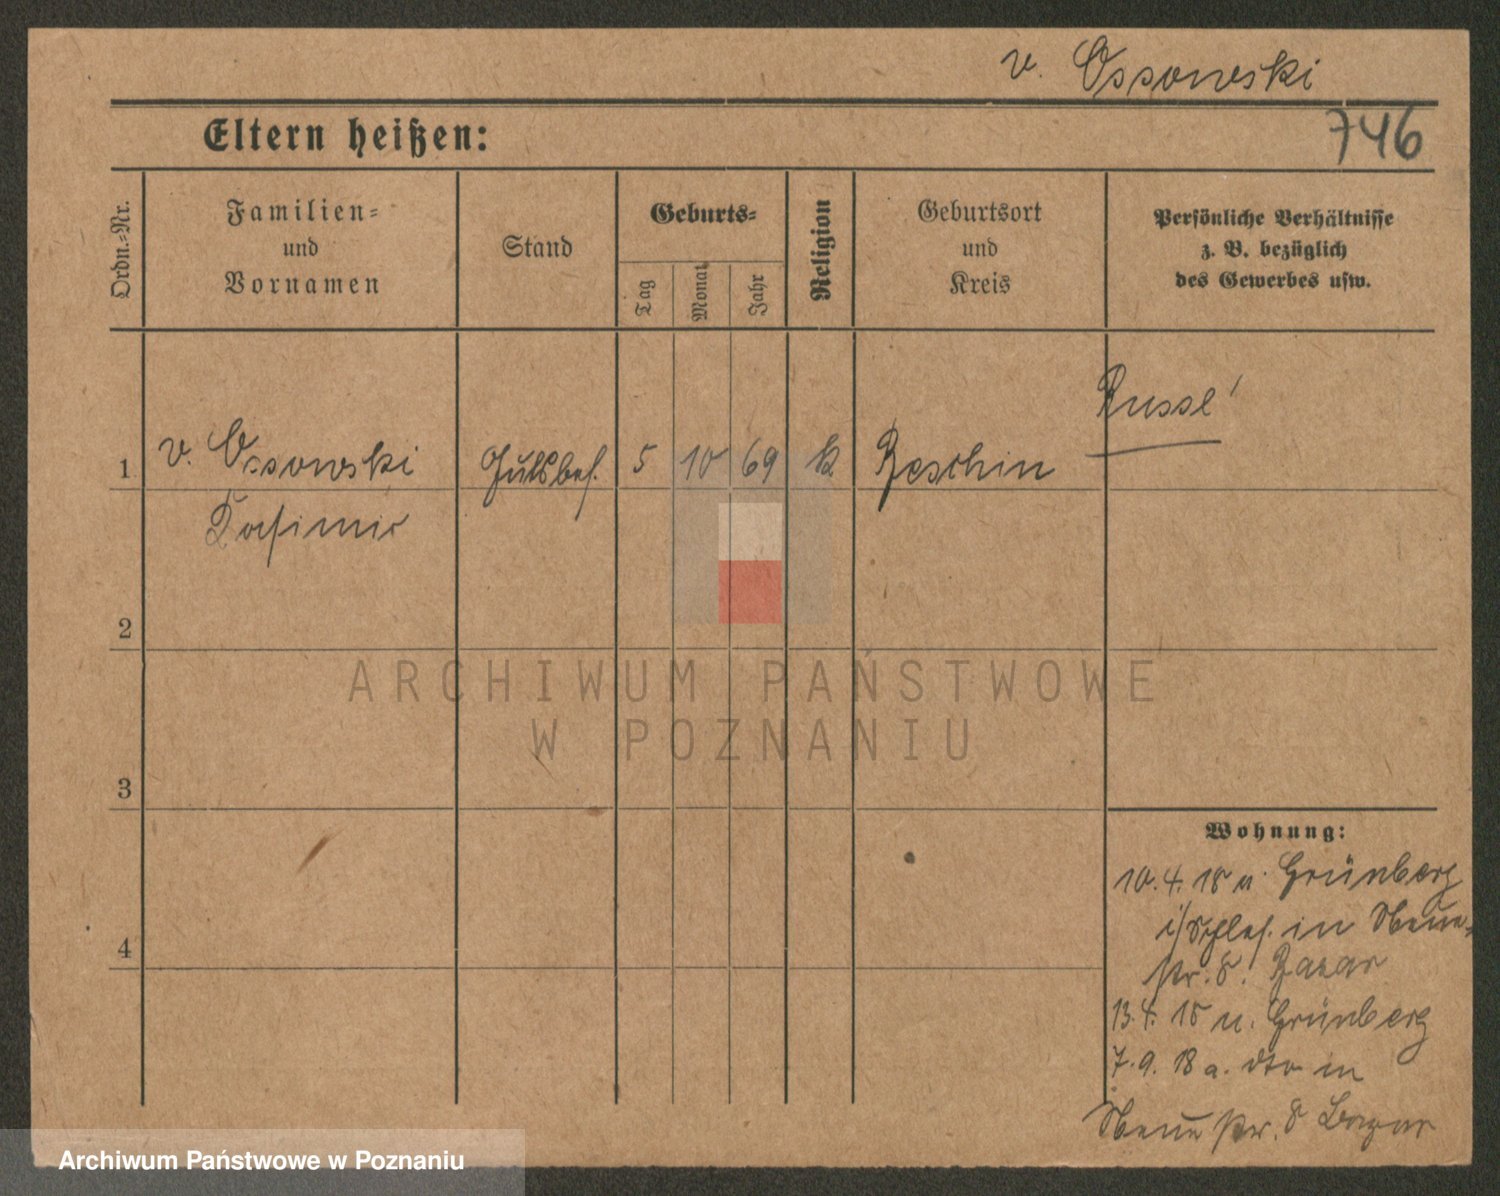 v. Ossowski
Eltern heißen:
746
Ordn.-Nr.
Familien-
und
Vornamen
Stand
Geburts-
Tag
Monat
Jahr
Religion
Geburtsort
und
Kreis
Persönliche Verhältnisse
z. B. bezüglich
des Gewerbes usw.
Russe
1 v. Ossowski Gutsbes. 5 10 69 k
Kasimir
2
3
4
Wohnung:
10. 4. 18 Grünberg
i/Schles. in Neue-
str. 8. Bazar
13. 4. 18 n. Grünberg
7. 9. 18 a. dto in
Neue str. 8 Bazar
ARCHIWUM PAŃSTWOWE
W POZNANIU
Archiwum Państwowe w Poznaniu